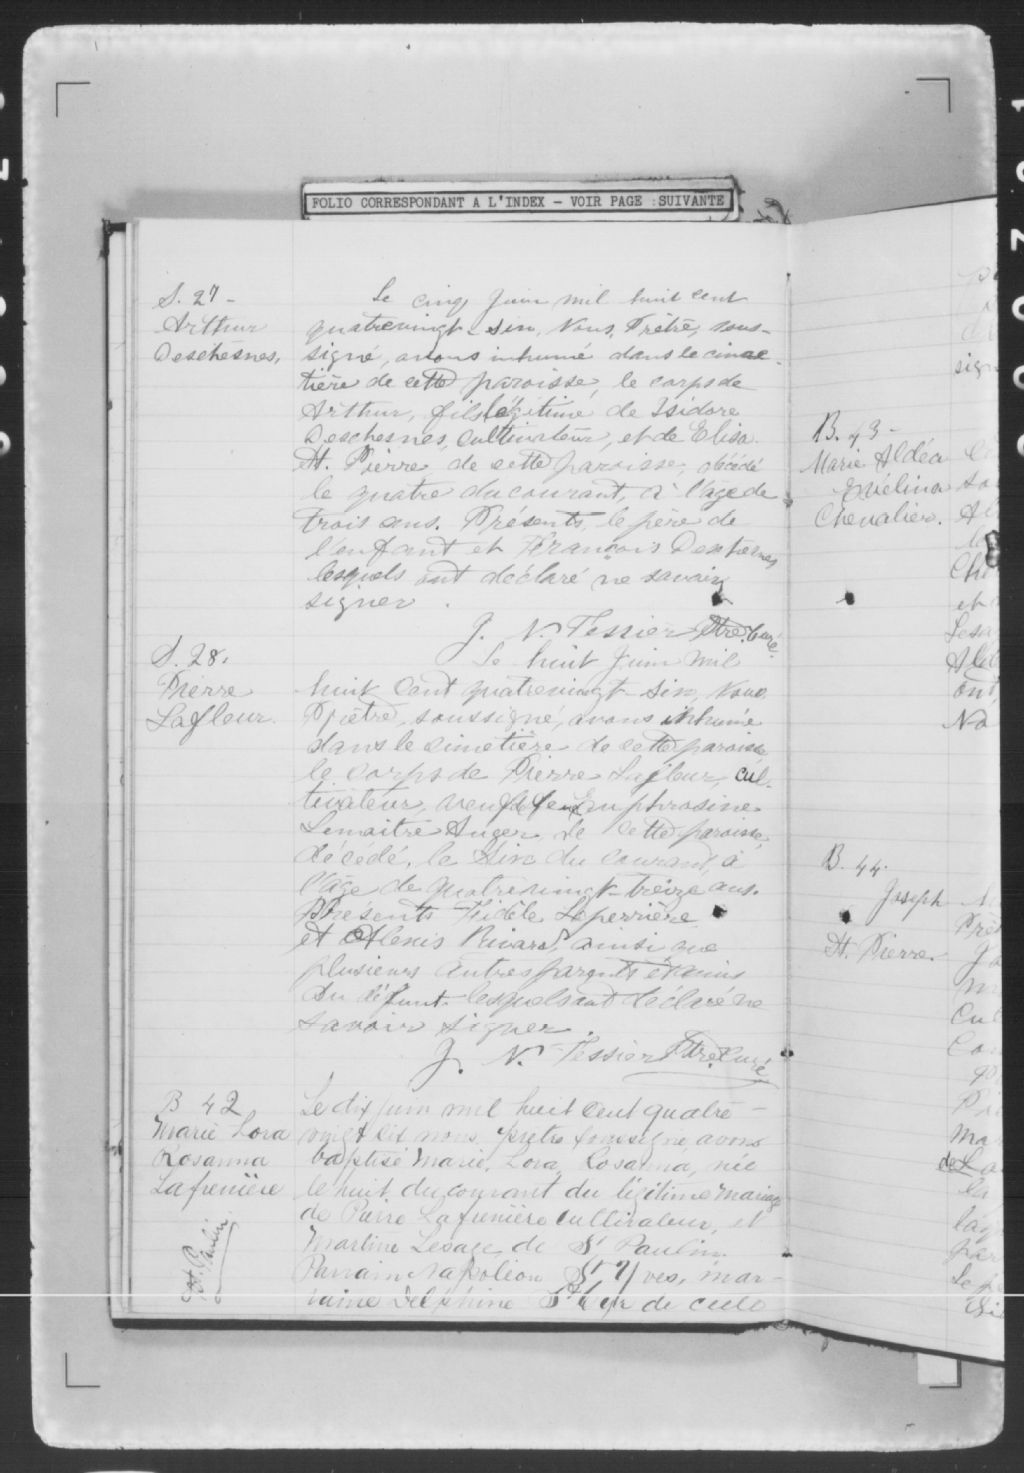 FOLIO CORRESPONDANT A L'INDEX - VOIR PAGE SUIVANTE
S. 27 -
Arthur
Deschesnes,
Le cinq Juin mil huit cent
quatrevingt-six, Nous, Prêtre, sous-
signé, avons inhumé dans le cime-
tière de cette paroisse, le corps de
Arthur, fils légitime de Isidore
Deschesnes, cultivateur, et de Elisa
St. Pierre, de cette paroisse, décédé
le quatre du courant, à l'âge de
trois ans. Présents, le père de
l'enfant et François
lesquels ont déclaré ne savoir
signer.
J. N. Tessier Ptre. Curé.
S. 28.
Pierre
Lafleur.
Le huit Juin mil
huit cent quatrevingt-six, Nous
Prêtre, soussigné, avons inhumé
dans le cimetière de cette paroisse
le corps de Pierre Lafleur, cul-
tivateur, veuf de feu Euphrosine
Lemaitre Auger, de cette paroisse,
décédé, le six du courant, à
l'âge de quatrevingt-treize ans.
Présents Fidèle Laperrière
et Alexis Ricard, ainsi que
plusieurs autres parents
du défunt lesquels ont déclaré ne
savoir signer.
J. N. Tessier Ptre. Curé
B 42
Marie Lora
Rosanna
Lafrenière
St. Paulin
Le dix juin mil huit cent quatre-
vingt six nous prêtre soussigné avons
baptisé Marie, Lora, Rosanna, née
le huit du courant du légitime mariage
de Pierre Lafrenière cultivateur, et
Martine Lesage de St Paulin
Parrain Napoléon St Yves, mar-
raine Delphine de celle
B. 43 -
Marie Aldéa
Evélina
Chevalier.
B. 44.
Joseph
St. Pierre.